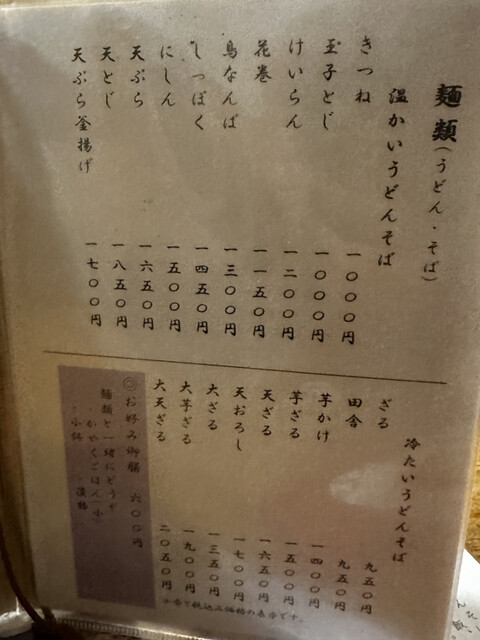 麺類(うどん・そば)
温かいうどんそば
きつね 一〇〇〇円
玉子とじ 一〇〇〇円
けいらん 一二〇〇円
花巻 一一五〇円
鳥なんば 一三〇〇円
しっぽく 一四五〇円
にしん 一五〇〇円
天ぷら 一六五〇円
天とじ 一八五〇円
天ぷら釜揚げ 一七〇〇円
冷たいうどんそば
ざる 九五〇円
田舎 九五〇円
芋かけ 一四〇〇円
芋ざる 一五〇〇円
天ざる 一六五〇円
天おろし 一七〇〇円
大ざる 一三五〇円
大芋ざる 一九〇〇円
大天ざる 二〇五〇円
◎お好み御膳 六〇〇円
麺類と一緒にどうぞ
・かやくごはん(小)
・小鉢 ・漬物
税込み価格の表示です。